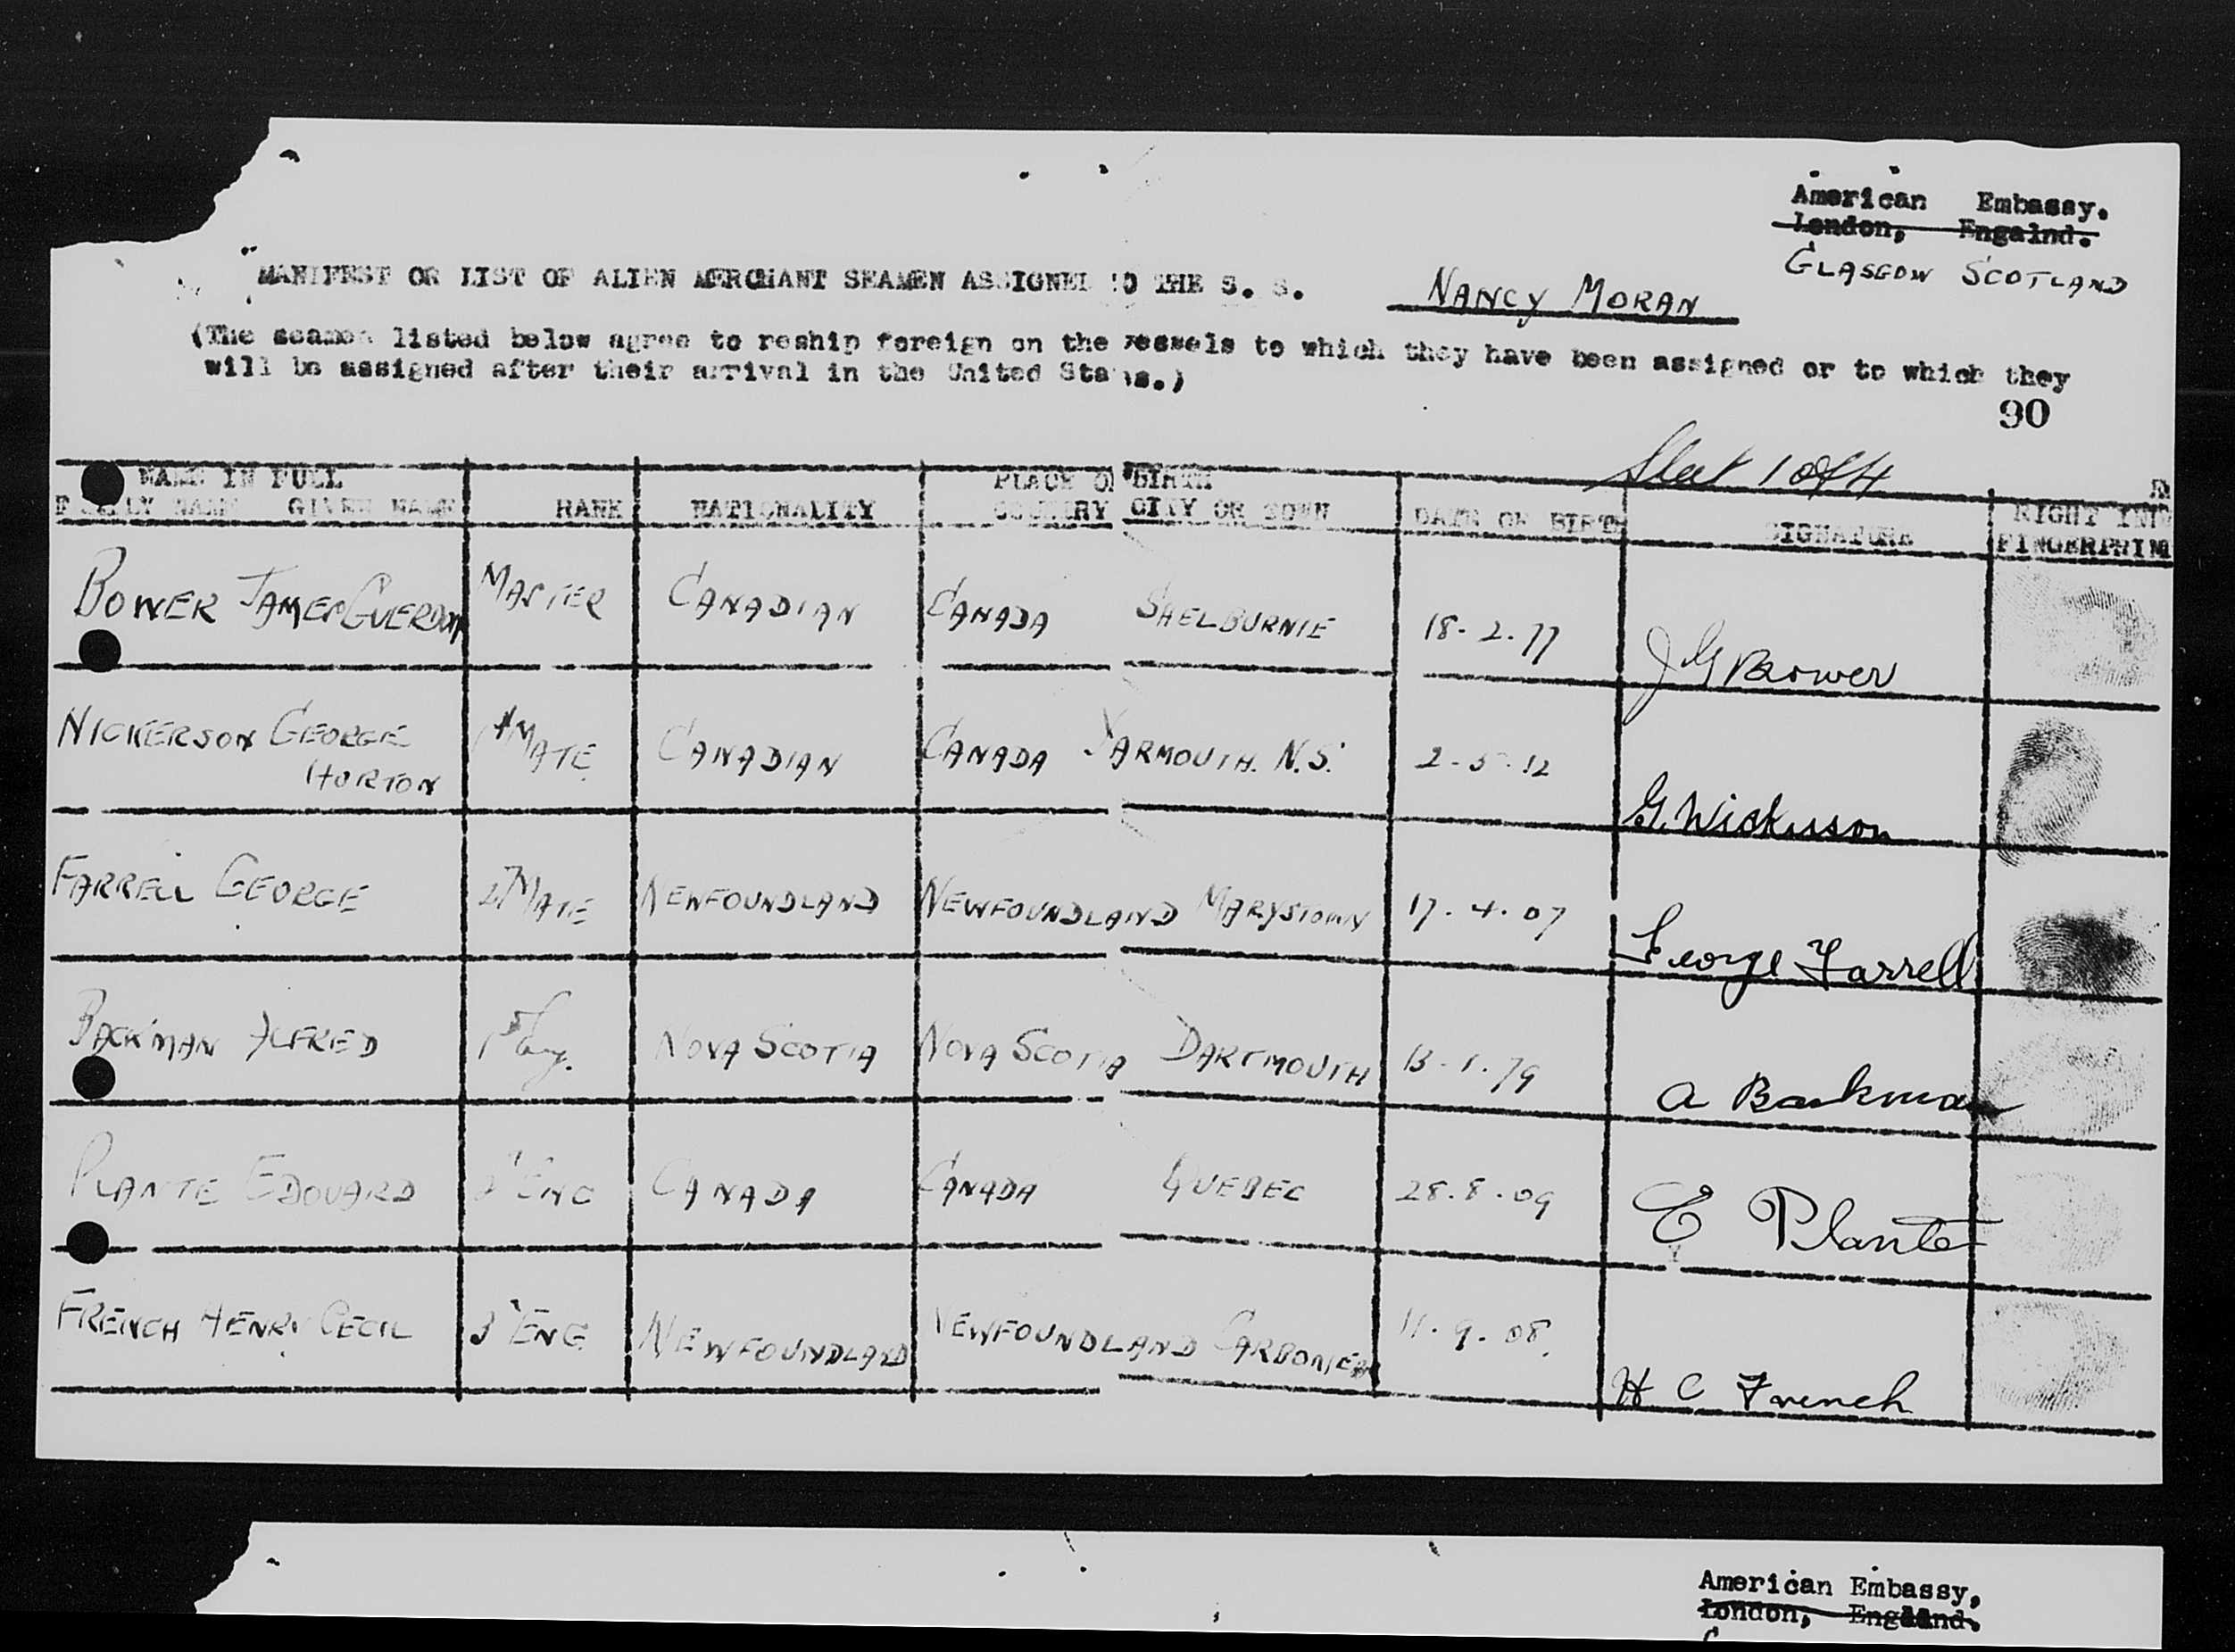 American Embassy.
London, Engalnd.
GLASGOW SCOTLAND
MANIFEST OR LIST OF ALIEN MERCHANT SEAMEN ASSIGNED TO THE S. S. NANCY MORAN
(The seamen listed below agree to reship foreign on the vessels to which they have been assigned or to which they
will be assigned after their arrival in the United States.)
90
Sheet 1 of 4
NAME IN FULL PLACE OF BIRTH
FAMILY NAME GIVEN NAME RANK NATIONALITY COUNTRY CITY OR TOWN DATE OF BIRTH SIGNATURE RIGHT
FINGERPRIN
BOWER JAMES GUERDON MASTER CANADIAN CANADA SHELBURNIE 18-2-77 J G Bower
NICKERSON GEORGE 1st MATE CANADIAN CANADA YARMOUTH. N.S. 2-5-12 G. Nickerson
HORTON
FARRELL GEORGE 2 MATE NEWFOUNDLAND NEWFOUNDLAND MARYSTOWN 17.4.07 George Farrell
BACKMAN ALFRED 1st Eng. NOVA SCOTIA NOVA SCOTIA DARTMOUTH 13.1.79 A Backman
PLANTE EDOUARD 2 ENG CANADA CANADA QUEBEC 28.8.09 E Plante
FRENCH HENRY CECIL 3 ENG NEWFOUNDLAND NEWFOUNDLAND CARBONEAR 11.9.08. H C French
American Embassy,
London, England.